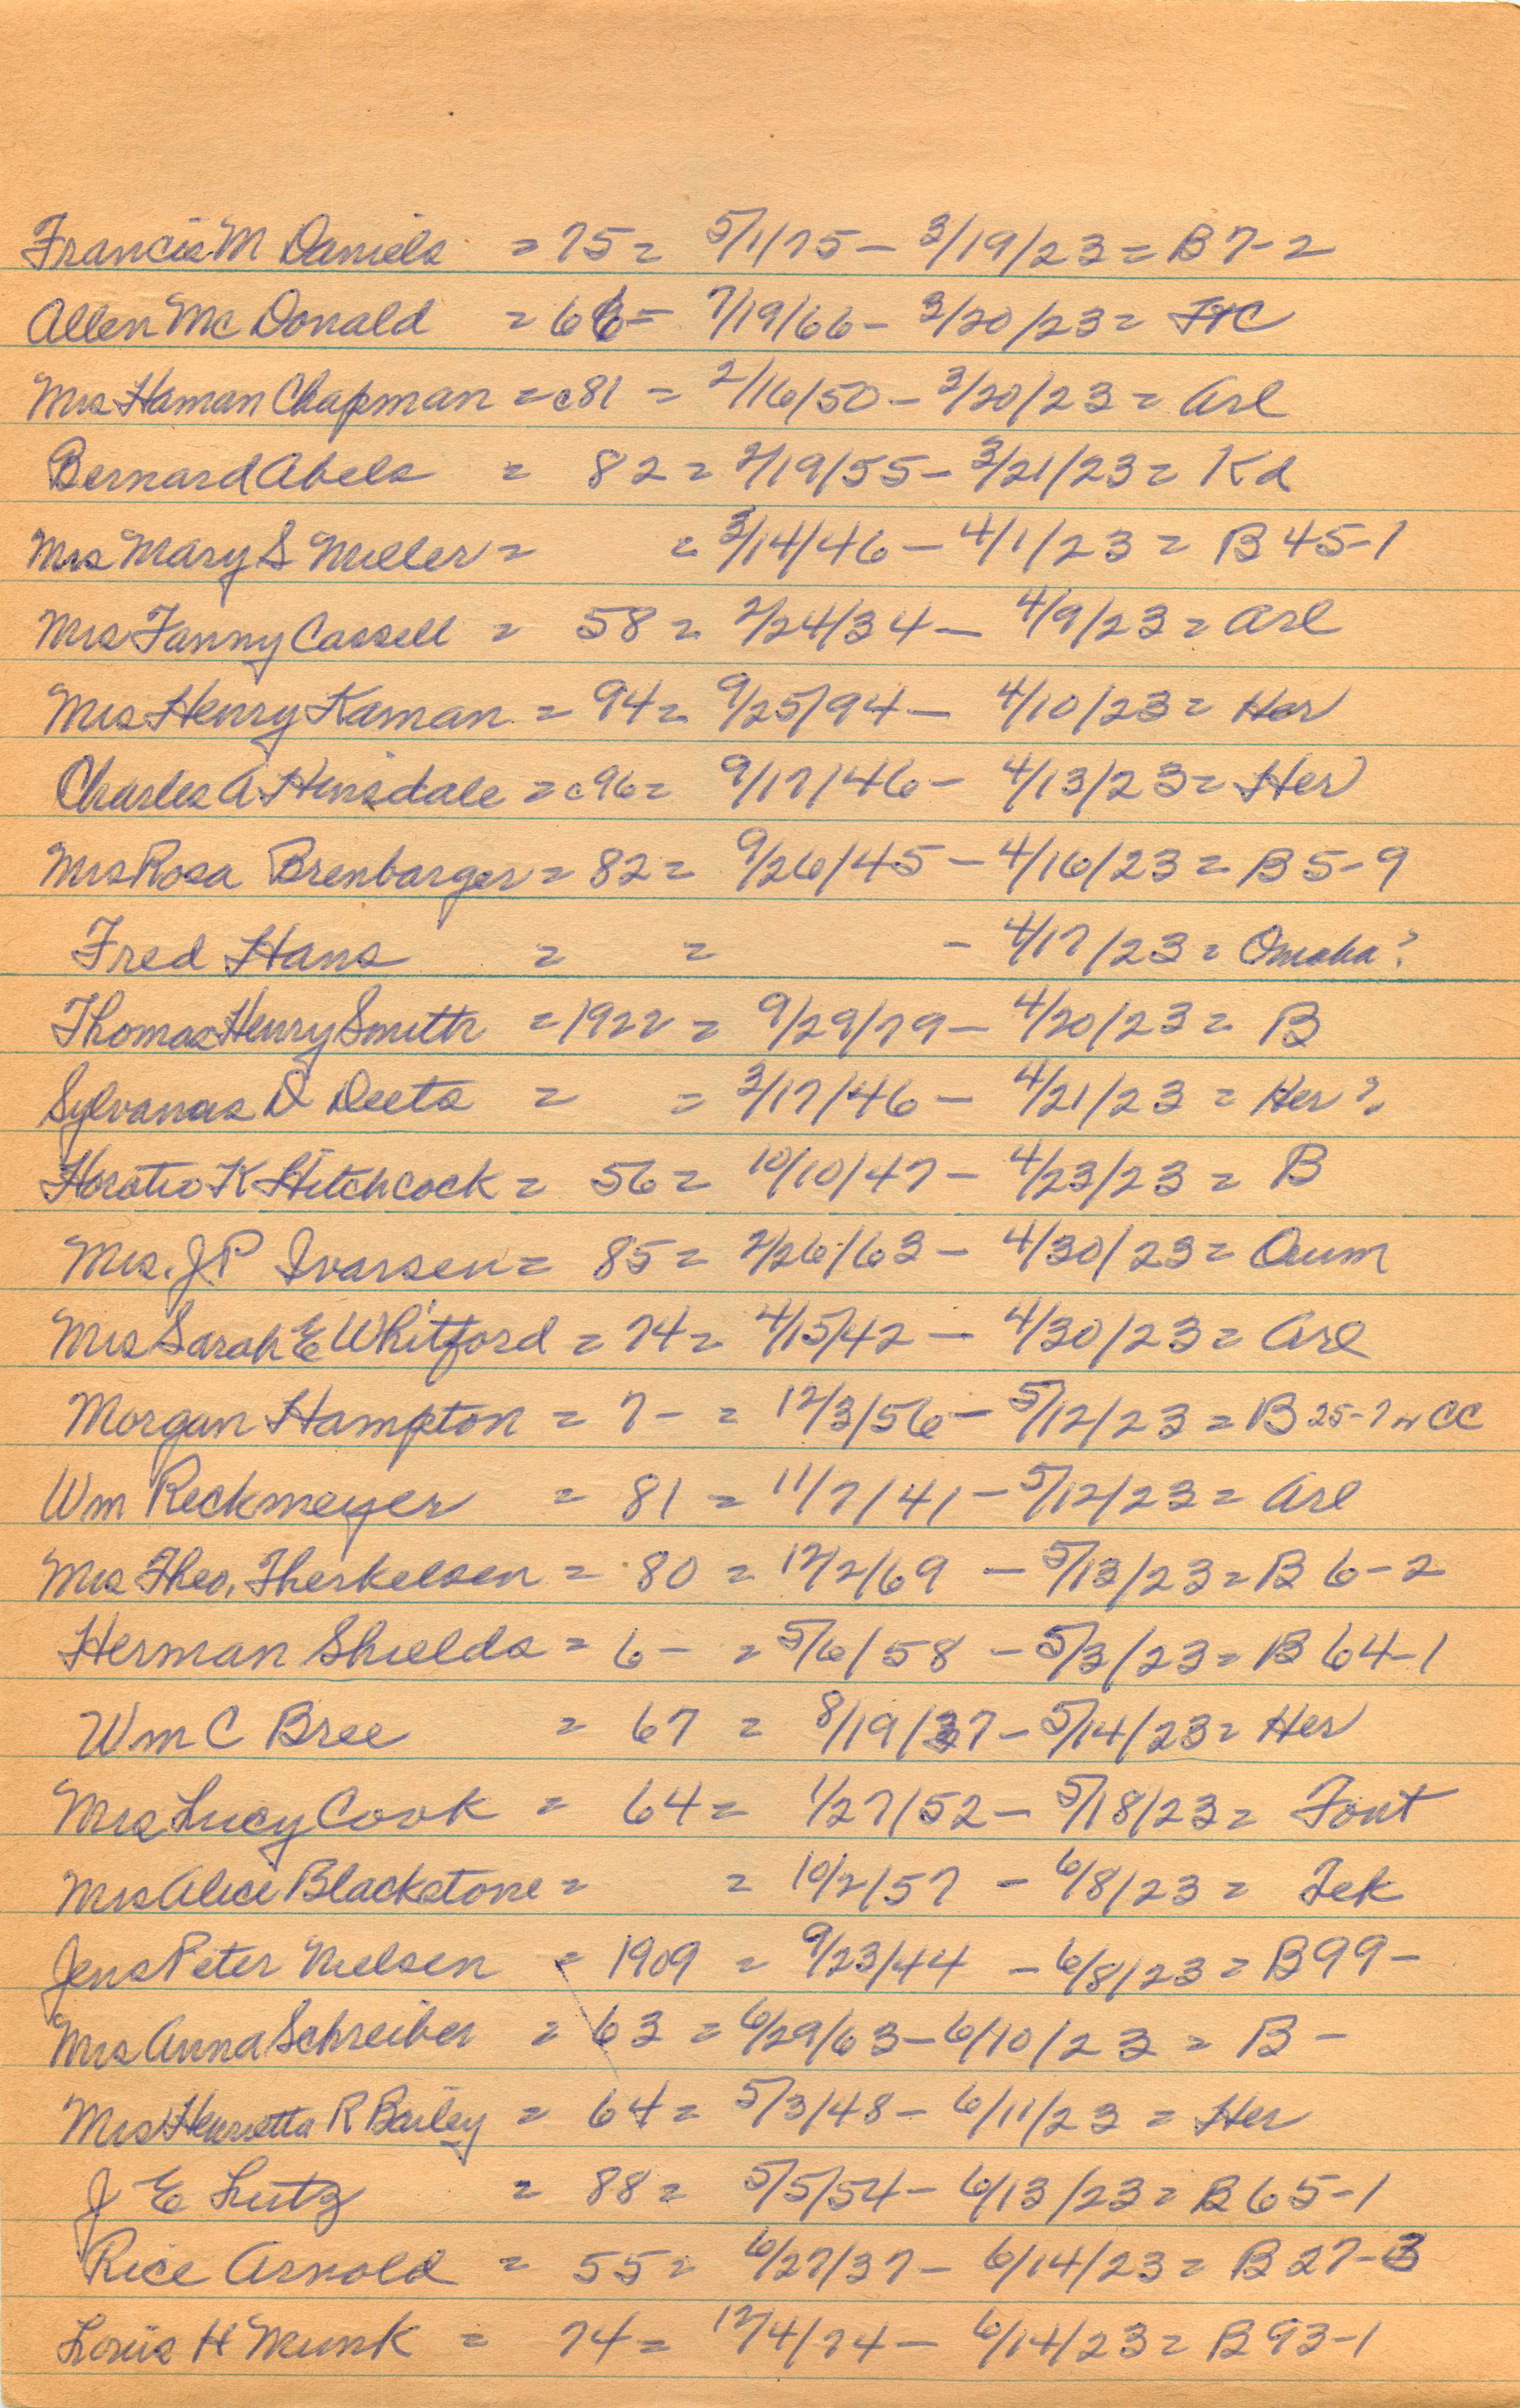 Francis M Daniels = 75 = 5/1/75 - 3/19/23 = B 7-2
Allen McDonald = 66 = 7/19/66 - 3/20/23 =
Mrs Haman Chapman = c81 = 2/16/50 - 3/20/23 = Arl
Bernard Abels = 82 = 2/19/55 - 3/21/23 = Kd
Mrs Mary S Miller = = 3/14/46 - 4/1/23 = B 45-1
Mrs Fanny Cassell = 58 = 2/24/34 - 4/9/23 = Arl
Mrs Henry Kaman = 94 = 9/25/94 - 4/10/23 = Her
Charles A Hinsdale = c96 = 9/17/46 - 4/13/23 = Her
Mrs Rosa Brenbarger = 82 = 9/26/45 - 4/16/23 = B 5-9
Fred Hans = = - 4/17/23 = Omaha?
Thomas Henry Smith = 1922 = 9/29/79 - 4/20/23 = B
Sylvanas D Deets = = 3/17/46 - 4/21/23 = Her?
Horatio K Hitchcock = 56 = 10/10/47 - 4/23/23 = B
Mrs. J.P Ivarsen = 85 = 2/26/63 - 4/30/23 = Oum
Mrs Sarah E Whitford = 74 = 4/15/42 - 4/30/23 = Arl
Morgan Hampton = 7- = 12/3/56 - 5/12/23 = B 25-7 CC
Wm Reckmeyer = 81 = 11/7/41 - 5/12/23 = Arl
Mrs Theo. Therkelsen = 80 = 12/2/69 - 5/13/23 = B 6-2
Herman Shields = 6- = 5/6/58 - 5/3/23 = B 64-1
Wm C Bree = 67 = 8/19/37 - 5/14/23 = Her
Mrs Lucy Cook = 64 = 1/27/52 - 5/18/23 = Font
Mrs Alice Blackstone = = 10/2/57 - 6/8/23 = Tek
Jens Peter Nielsen = 1909 = 9/23/44 - 6/8/23 = B 99-
Mrs Anna Schreiber = 63 = 6/29/63 - 6/10/23 = B -
Mrs Henrietta R Bailey = 64 = 5/3/48 - 6/11/23 = Her
J E Lutz = 88 = 5/5/54 - 6/13/23 = B 65-1
Rice Arnold = 55 = 6/27/37 - 6/14/23 = B 27-3
Louis H Munk = 74 = 12/4/74 - 6/14/23 = B 93-1